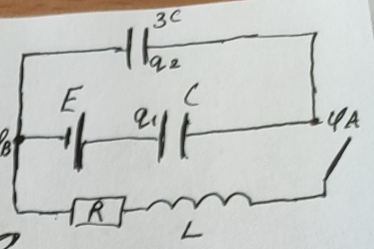 3C
q2
E
q1
C
φB
φA
R
L